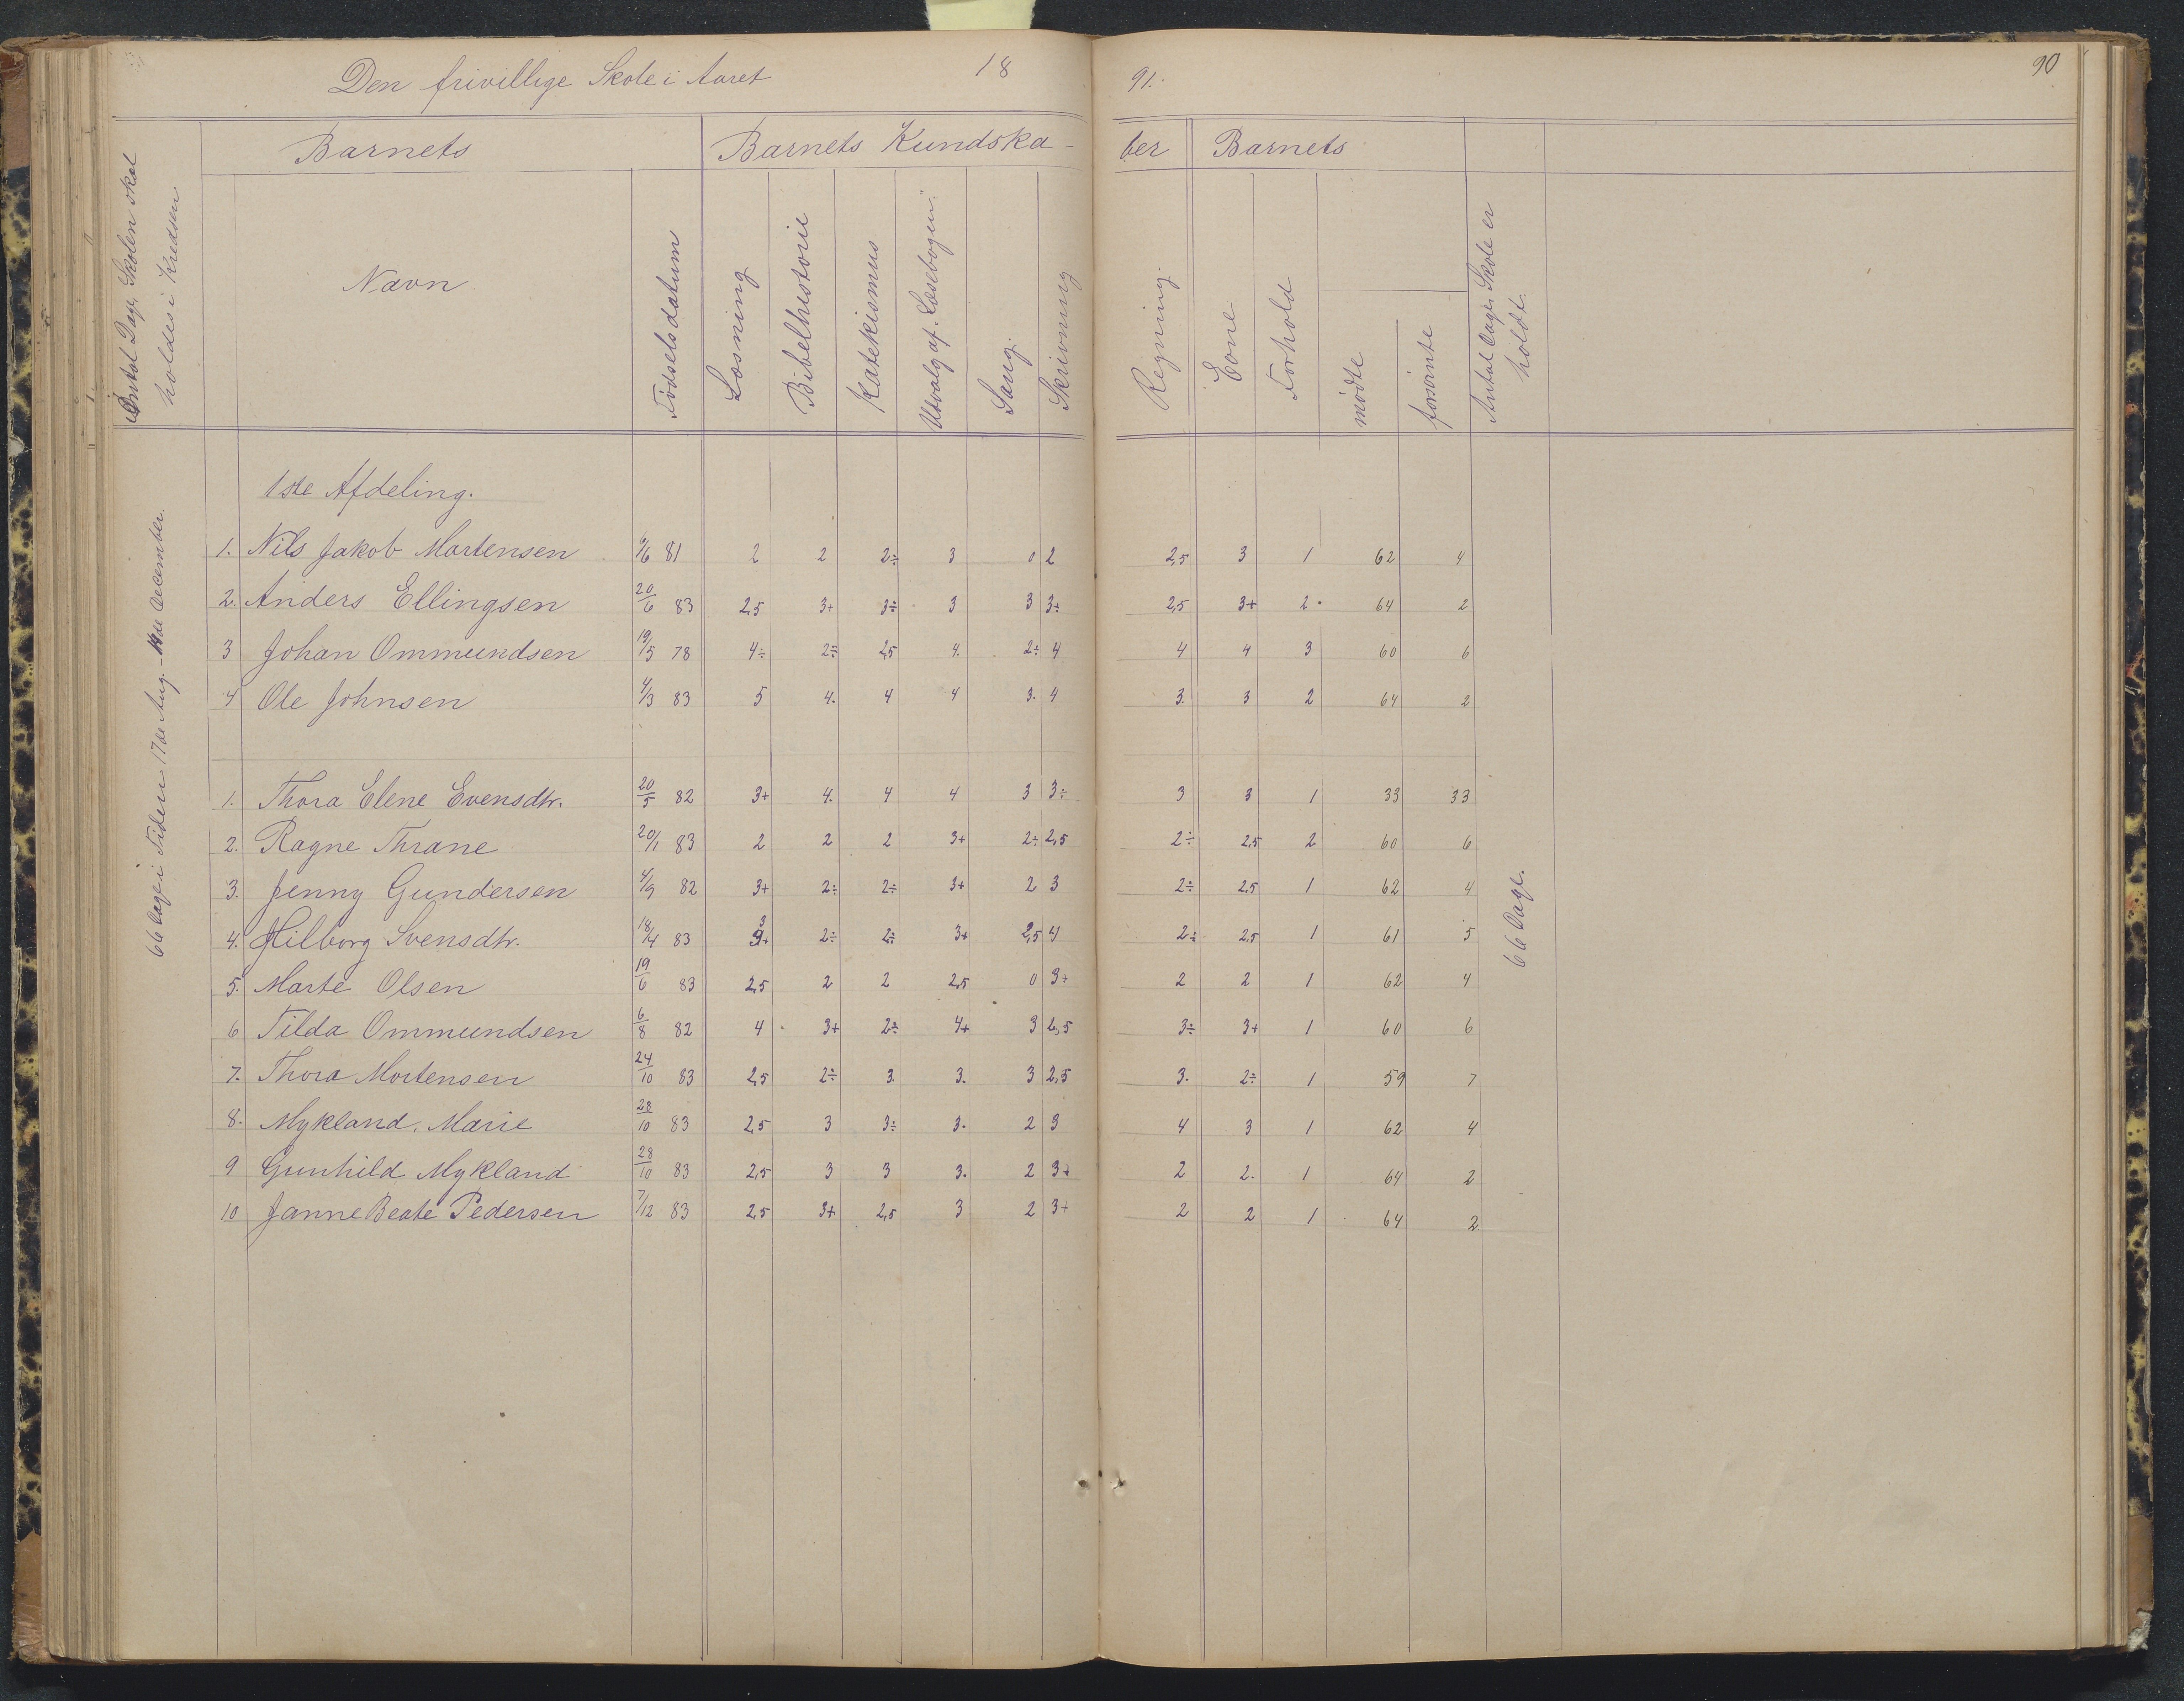 Den frivillige Skole i Aaret 18 91. 90
Barnets Barnets Kundska- ber Barnets
Antal Dage, Skolen skal holdes i Kredsen
Navn
Fødselsdatum
Læsning
Bibelhistorie
Katekismus
Udvalg af "Læsebogen".
Sang.
Skrivning
Regning.
Evne
Forhold
mødte
forsømte
Antal Dage Skole er holdt.
1ste Afdeling.
1. Nils Jakob Martensen 9/6 81 2 2 2÷ 3 0 2 2,5 3 1 62 4
2. Anders Ellingsen 20/6 83 2,5 3+ 3÷ 3 3 3÷ 2,5 3+ 2 64 2
3 Johan Ommundsen 19/5 78 4÷ 2÷ 2,5 4. 2÷ 4 4 4 3 60 6
4 Ole Johnsen 4/3 83 5 4. 4 4 3. 4 3. 3 2 64 2
1. Thora Elene Evensdtr. 20/5 82 3+ 4. 4 4 3 3÷ 3 3 1 33 33
2. Ragne Thrane 20/1 83 2 2 2 3+ 2÷ 2,5 2÷ 2,5 2 60 6
3. Jenny Gundersen 4/9 82 3+ 2÷ 2÷ 3+ 2 3 2÷ 2,5 1 62 4
4. Hilborg Svensdtr. 18/4 83 3+ 2÷ 2÷ 3+ 2,5 4 2÷ 2,5 1 61 5
5. Marte Olsen 19/6 83 2,5 2 2 2,5 0 3+ 2 2 1 62 4
6 Tilda Ommundsen 6/8 82 4 3+ 2÷ 4+ 3 2,5 3÷ 3+ 1 60 6
7. Thora Mortensen 24/10 83 2,5 2÷ 3. 3. 3 2,5 3. 2÷ 1 59 7
8. Mykland, Marie 28/10 83 2,5 3 3÷ 3. 2 3 4 3 1 62 4
9 Gunhild Mykland 28/10 83 2,5 3 3 3. 2 3+ 2 2. 1 64 2
10 Janne Beate Pedersen 7/12 83 2,5 3+ 2,5 3 2 3+ 2 2 1 64 2
66 Dage i Tiden 17de Aug. - December.
66 Dage.